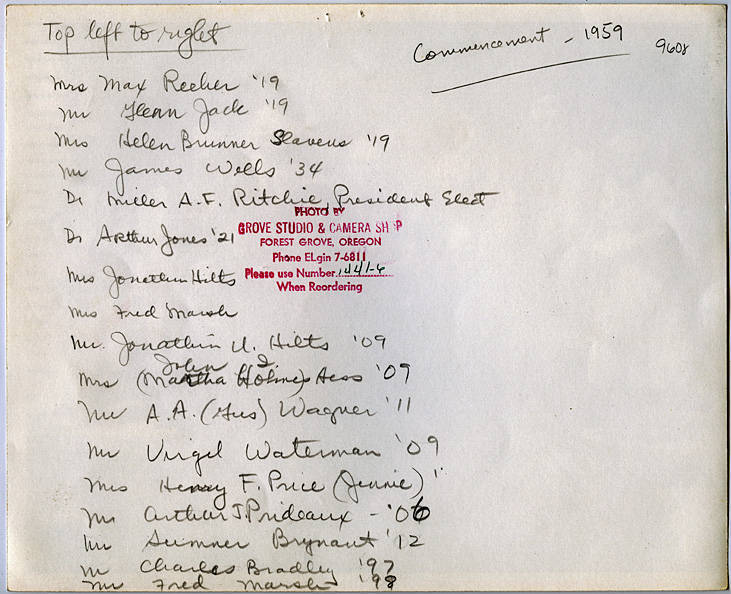 Top left to right
Commencement - 1959
9608
Mrs Max Reeher '19
Mr Glenn Jack '19
Mrs Helen Brunner Slavens '19
Mr James Wells '34
Dr Miller A.F. Ritchie, President Elect
PHOTO BY
GROVE STUDIO & CAMERA SHOP
FOREST GROVE, OREGON
Phone ELgin 7-6811
Please use Number 1441-6
When Reordering
Dr Arthur Jones '21
Mrs Jonathan Hilts
Mrs Fred Marsh
Mr. Jonathan U. Hilts '09
John
Mrs (Martha Holmes) Hess '09
Mr A.A. (Gus) Wagner '11
Mr Virgil Waterman '09
Mrs Henry F. Price (Jennie)
Mr Arthur J Prideaux - '06
Mr Sumner Brynant '12
Mr Charles Bradley '97
Mr Fred Marsh